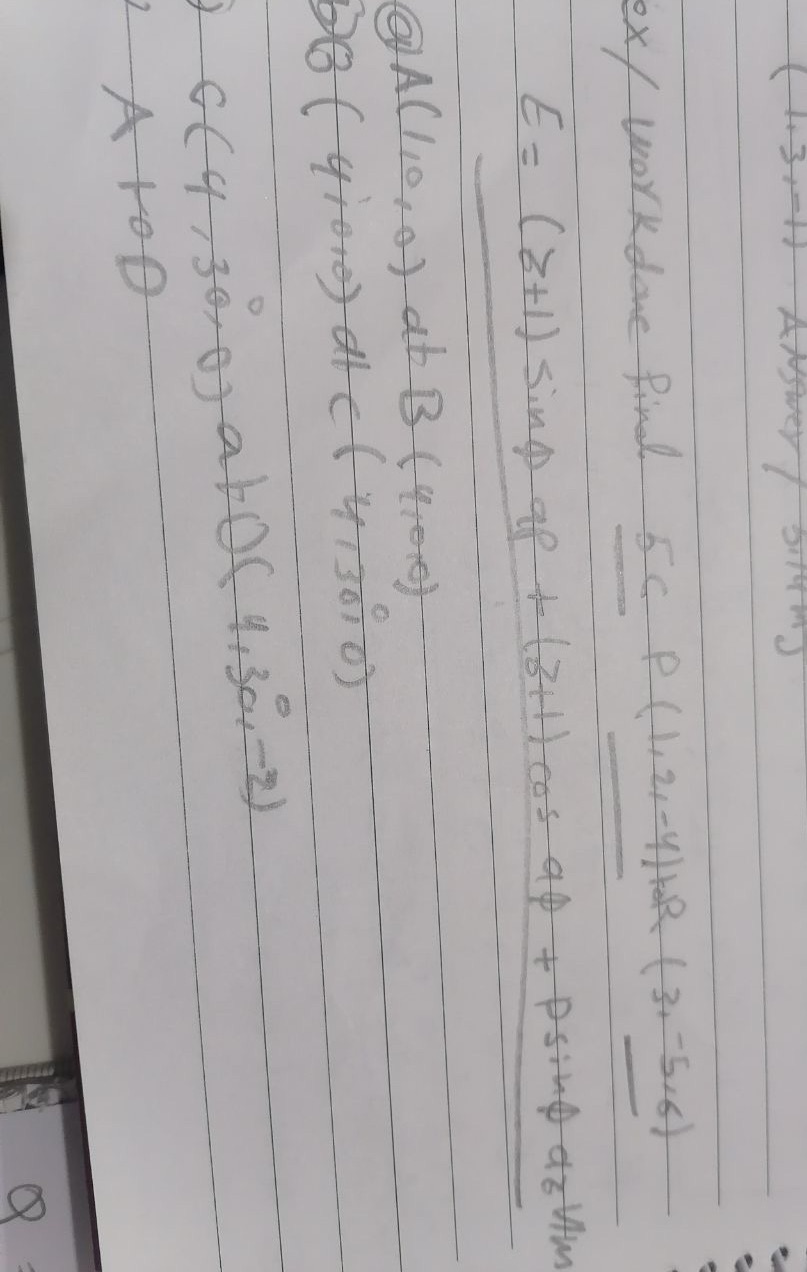 (1,3,-1) Answer/ 5.14 mJ
ex/ workdone find 5C P(1,2,-4) to R (3,-5,6)
E = (z+1) sinφ aρ + (z+1) cos aφ + ρ sinφ az V/m
@ A(1,0,0) at B (4,0,0)
B (4,0,0) at C (4,30°,0)
) C(4,30°,0) at D(4,30°,-2)
A to D